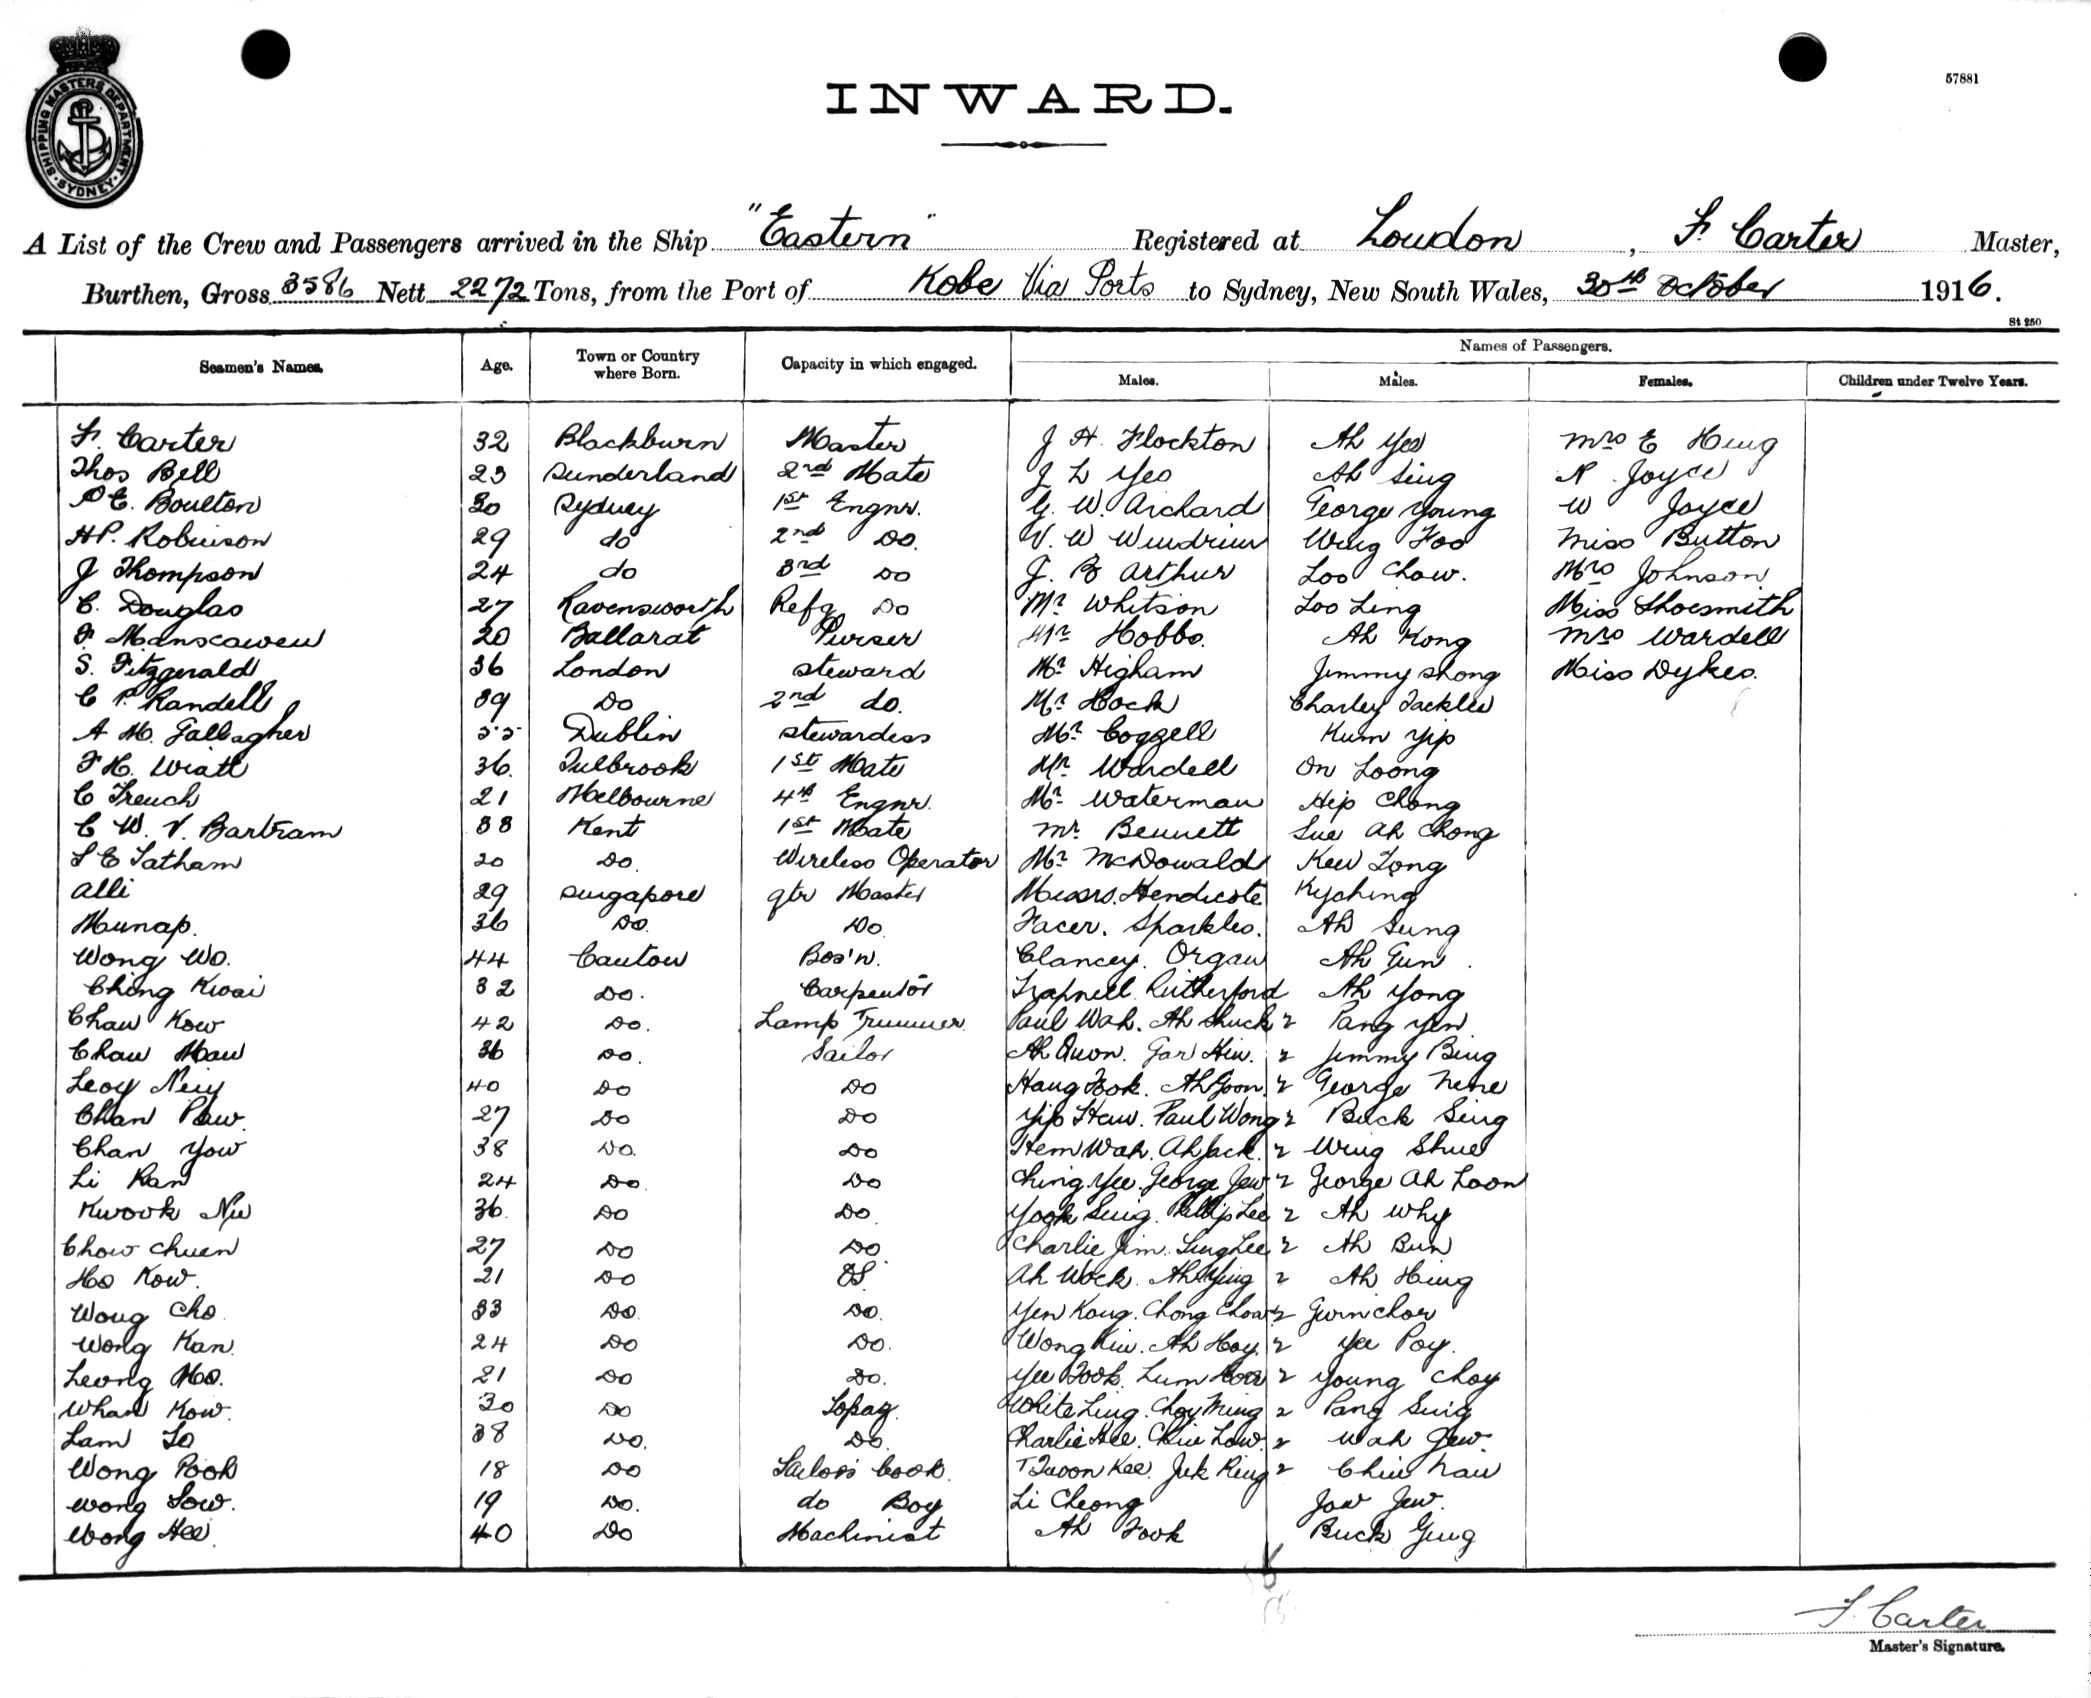 SHIPPING MASTERS DEPARTMENT
SYDNEY
57881
INWARD.
A List of the Crew and Passengers arrived in the Ship "Eastern" Registered at London, F. Carter Master,
Burthen, Gross 3586 Nett 2272 Tons, from the Port of Kobe Via Ports to Sydney, New South Wales, 30th October 1916.
St 250
Seamen's Names. Age. Town or Country where Born. Capacity in which engaged. Names of Passengers.
Males. Males. Females. Children under Twelve Years.
F. Carter 32 Blackburn Master J H Flockton Ah Yee Mrs E Hing
Thos Bell 23 Sunderland 2nd Mate J L Yeo Ah Sing N Joyce
P E. Boulton 30 Sydney 1st Engnr. G. W. Archard George Young W Joyce
HP. Robinson 29 do 2nd Do. V. W Windrim Wing Foo Miss Button
J Thompson 24 do 3rd Do J. B Arthur Loo Chow. Mrs Johnson
C. Douglas 27 Ravensworth Refg Do Mr Whitson Loo Ling Miss Shoesmith
F. Manscawen 20 Ballarat Purser Mr Hobbs. Ah Kong Mrs Wardell
S. Fitzgerald 36 London Steward Mr Higham Jimmy Shong Miss Dykes.
C P. Randell 39 Do 2nd do. Mr Hock Charley Tacklee
A M. Gallagher 55 Dublin Stewardess Mr Coggell Kum Yip
F H. Wiatt 36. Tulbrook 1st Mate Mr Wardell On Loong
C French 21 Melbourne 4th Engnr. Mr Waterman Hip Chong
C W. V. Bartram 38 Kent 1st Mate Mr Bennett Sue Ah Chong
S E Tatham 20 Do. Wireless Operator Mr McDowald Kew Tong
Alli 29 Singapore qtr Master Messrs. Hendicote Kyching
Munap. 36 Do. Do. Facer. Sparkles. Ah Sung
Wong Wo. 44 Canton Bos'n. Clancey. Organ Ah Gun.
Ching Kwai 32 Do. Carpentor Trapnell Rutherford Ah Yong
Chan Kow 42 Do. Lamp Trimmer. Paul Wah. Ah Shuck 2 Pang Yen
Chan Man 36 Do. Sailor Ah Quon. Gar Hin. 2 Jimmy Bing
Leoy Neiy 40 Do Do Hang Fook. Ah Goon. 2 George Nene
Chan Paw. 27 Do Do Yip Hew. Paul Wong 2 Buck Sing
Chan You 38 Do. Do Hem Wah. Ah Jack. 2 Wing Shue
Li Kan 24 Do. Do Ching Yee. George Jew 2 George Ah Loon
Kwook Niu 36. Do Do. Yook Sing. Phillip Lee 2 Ah Why
Chow Chuen 27 Do Do. Charlie Jim. Sing Lee 2 Ah Bun
Ho Kow. 21 Do OS Ah Wock. Ah Ying 2 Ah Hing
Wong Cho. 33 Do. Do. Yen Kong. Chong Choa 2 Gwinchor
Wong Kan. 24 Do Do. Wong Kiu. Ah Hoy. 2 Yee Poy.
Leong Mo. 21 Do Do. Yee Fook. Lum 2 Young Choy
Whan Kow. 30 Do Topag. White Ling. Choy Ming 2 Pang Suig
Lam To 38 Do. Do. Charlie Hee. Chin Low. 2 Wah Jew.
Wong Pook 18 Do Sailors Cook. Quon Kee. Juk King 2 Chin Nan
Wong Sow. 19 Do. do Boy Li Cheong Jow Jew.
Wong Hee 40 Do Machinist Ah Fook Buck Ging
F. Carter
Master's Signature.